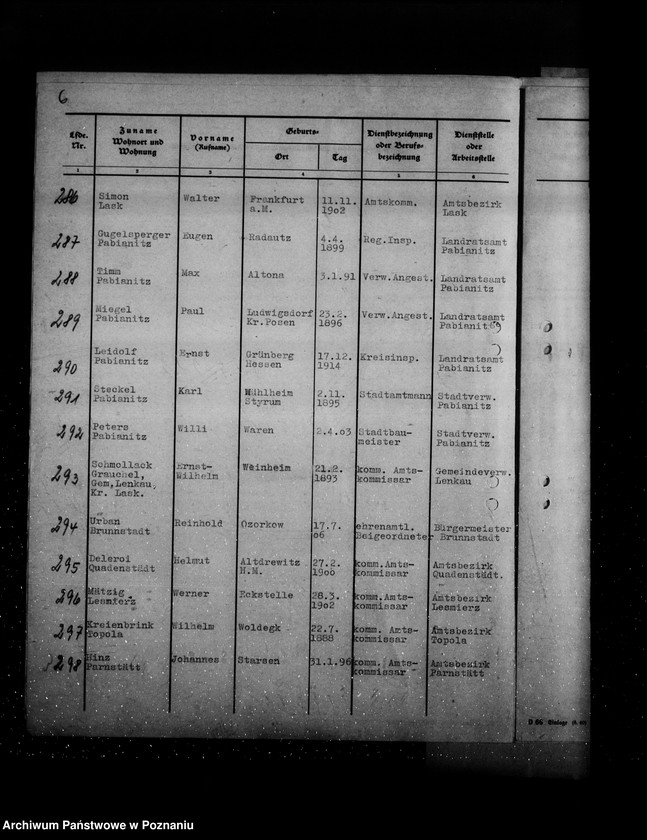 6
Lfde. Nr.
Zuname Wohnort und Wohnung
Vorname (Rufname)
Geburts-
Ort
Tag
Dienstbezeichnung oder Berufs- bezeichnung
Dienststelle oder Arbeitsstelle
1 2 3 4 5 6
286 Simon Walter Frankfurt 11.11. Amtskomm. Amtsbezirk
Lask a.M. 1902 Lask
287 Gugelsperger Eugen Radautz 4.4. Reg.Insp. Landratsamt
Pabianitz 1899 Pabianitz
288 Timm Max Altona 3.1.91 Verw.Angest. Landratsamt
Pabianitz Pabianitz
289 Miegel Paul Ludwigsdorf 23.2. Verw.Angest. Landratsamt
Pabianitz Kr.Posen 1896 Pabianitz
290 Leidolf Ernst Grünberg 17.12. Kreisinsp. Landratsamt
Pabianitz Hessen 1914 Pabianitz
291 Steckel Karl Mühlheim 2.11. Stadtamtmann Stadtverw.
Pabianitz Styrum 1895 Pabianitz
292 Peters Willi Waren 2.4.03 Stadtbau- Stadtverw.
Pabianitz meister Pabianitz
293 Schmollack Ernst- Weinheim 21.2. komm. Amts- Gemeindeverw.
Grauchel, Wilhelm 1893 kommissar Lenkau
Gem,Lenkau,
Kr. Lask.
294 Urban Reinhold Ozorkow 17.7. ehrenamtl. Bürgermeister
Brunnstadt 06 Beigeordneter Brunnstadt
295 Deleroi Helmut Altdrewitz 27.2. komm.Amts- Amtsbezirk
Quadenstädt N.M. 1900 kommissar Quadenstädt.
296 Mätzig Werner Eckstelle 28.3. komm.Amts- Amtsbezirk
Lesmierz 1902 kommissar Lesmierz
297 Kreienbrink Wilhelm Woldegk 22.7. komm. Amts- Amtsbezirk
Topola 1888 kommissar Topola
298 Hinz Johannes Starsen 31.1.96 komm. Amts- Amtsbezirk
Parnstätt kommissar Parnstätt
D 86 Einlage
Archiwum Państwowe w Poznaniu